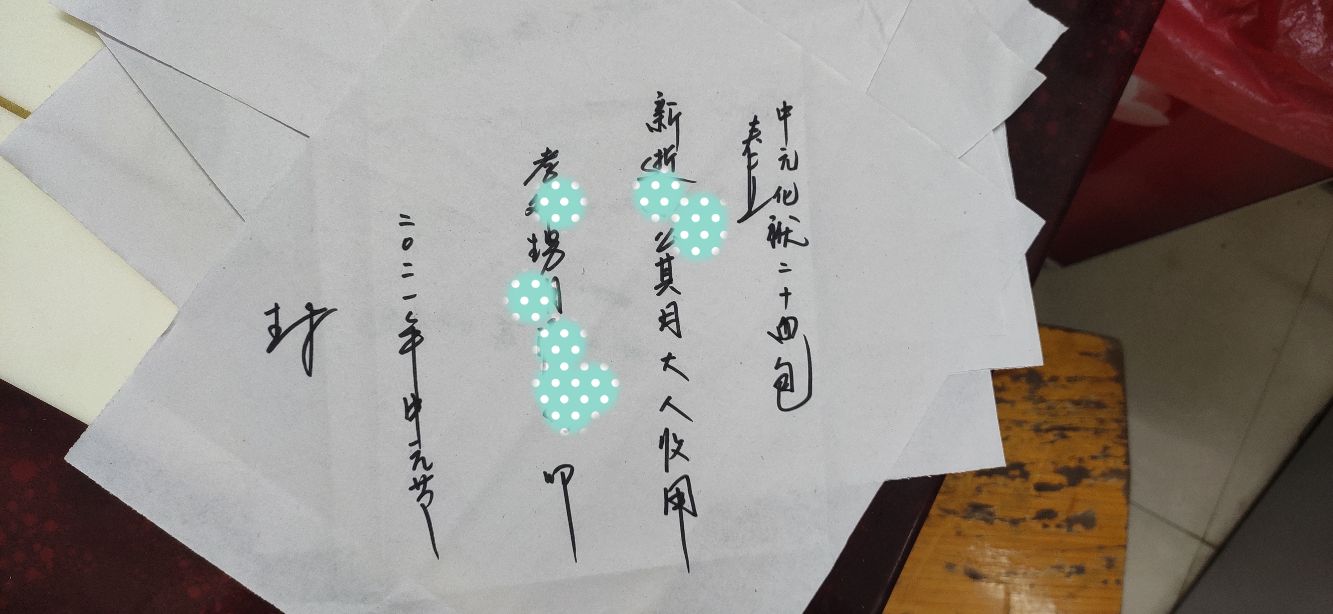 中元化袱二十四包
奉上
新逝公其月大人收用
孝叩
二〇二一年中元节
封